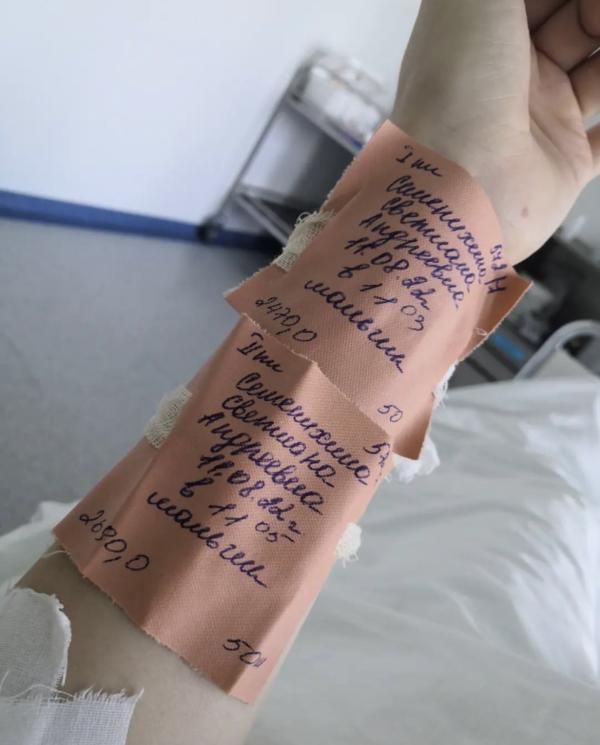 I пл
Семенихина
Светлана
Андреевна
11.08.22г
в 11 03
мальчик
2470,0
50
II пл
Семенихина
Светлана
Андреевна
11.08.22г
в 11 05
мальчик
2680,0
50